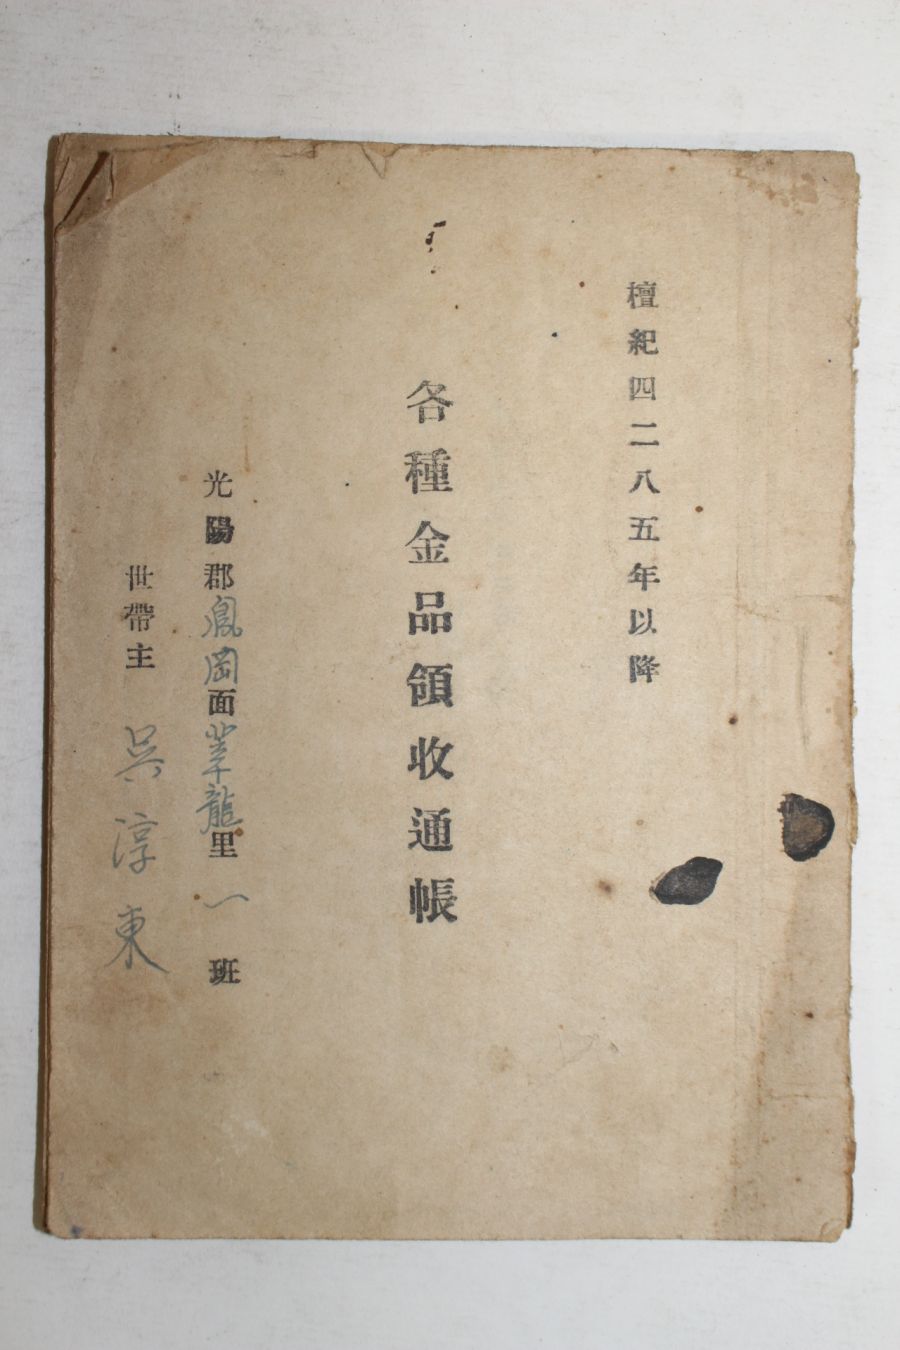 檀紀四二八五年以降
各種金品領收通帳
光陽郡鳳岡面葦龍里一班
世帶主 吳淳東